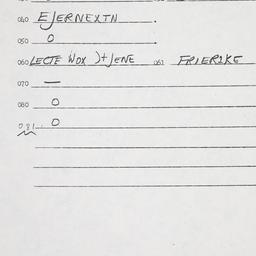 040 EJERNEXTN .
050 O .
060 LECTE WOX )+JENE 061 FRIERIKE
070 —
080 O
081 O